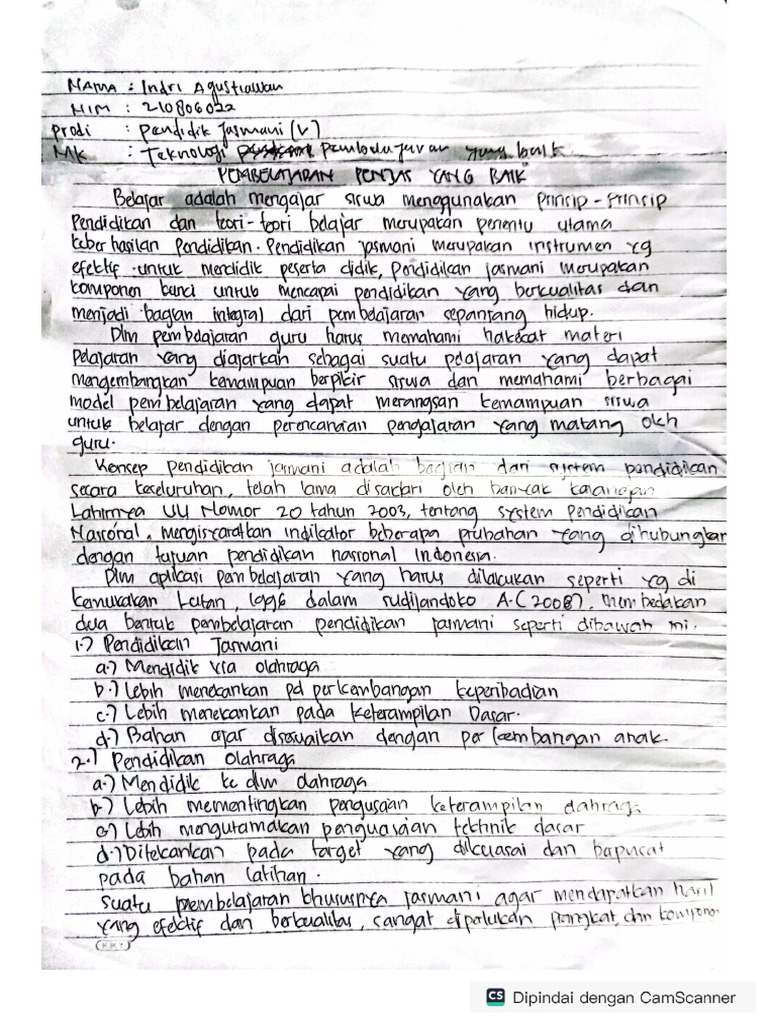 NAMA : Indri Agustiawan
NIM : 210806022
prodi : pendidik Jasmani (V)
MK : Teknologi pembelajaran yang baik
PEMBELAJARAN PENJAS YANG BAIK
Belajar adalah mengajar siswa menggunakan prinsip-prinsip
Pendidikan dan teori-teori belajar merupakan penentu utama
keberhasilan pendidikan. Pendidikan jasmani merupakan instrumen yg
efektif untuk mendidik peserta didik, Pendidikan jasmani merupakan
komponen kunci untuk mencapai pendidikan yang berkualitas dan
menjadi bagian integral dari pembelajaran sepanjang hidup.
Dlm pembelajaran guru harus memahami hakekat materi
pelajaran yang diajarkan sebagai suatu pelajaran yang dapat
mengembangkan kemampuan berpikir siswa dan memahami berbagai
model pembelajaran yang dapat merangsan kemampuan siswa
untuk belajar dengan perencanaan pengajaran yang matang oleh
guru.
Konsep pendidikan jasmani adalah bagian dari system pendidikan
secara keseluruhan, telah lama disadari oleh banyak kalangan
Lahirnya UU Nomor 20 tahun 2003, tentang system Pendidikan
Nasional, mengisyaratkan indikator beberapa prubahan yang dihubungkan
dengan tujuan pendidikan nasional Indonesia.
Dlm aplikasi pembelajaran yang harus dilakukan seperti yg di
kemukakan Lutan, 1996 dalam rudijandoko A.(2008), membedakan
dua bentuk pembelajaran pendidikan jasmani seperti dibawah ini.
1.) Pendidikan Jasmani
a.) Mendidik via olahraga
b.) Lebih menekankan pd perkembangan keperibadian
c.) Lebih menekankan pada keterampilan Dasar.
d.) Bahan ajar disesuaikan dengan perkembangan anak.
2.) Pendidikan Olahraga
a.) Mendidik ke dlm olahraga
b.) Lebih mementingkan pengusaan keterampilan olahraga
c.) Lebih mengutamakan penguasaan tekhnik dasar
d.) Ditekankan pada target yang dikuasai dan berpusat
pada bahan latihan.
Suatu pembelajaran khususnya jasmani agar mendapatkan hasil
yang efektif dan berkualitas, sangat diperlukan pangkat, dan komponen
CS Dipindai dengan CamScanner